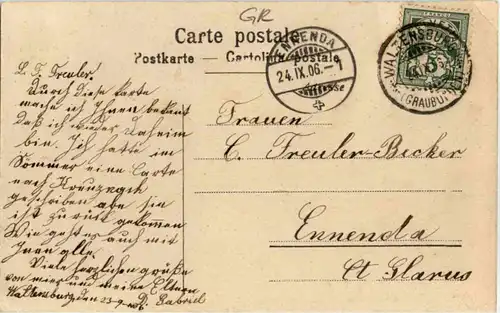 GR
Carte postale
Postkarte — Cartolina postale
ENNENDA
24.IX.06.-9
WALTENSBURG
(GRAUBÜ
FRANCO
5
L. F. Treuler!
Durch diese Karte
mache ich Ihnen bekant
daß ich wieder Daheim
bin. Ich hatte im
Sommer eine Carte
nach
geschriben abe sie
ist zurük gekommen
Wie geht es auch mit
Inen alle.
Viele herzlichen grüße
von mier und meine Eltern
Waltensburg den 23-9-06 D. Gabriel
Frauen
C. Freuler-Becker
Ennenda
Ct Glarus